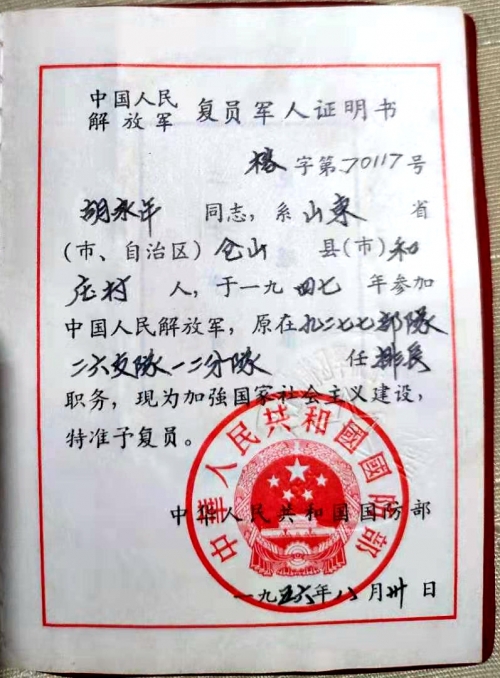 中国人民
解放军
复员军人证明书
榕字第70117号
胡永年 同志，系山东 省
(市、自治区) 仓山 县(市) 和
庄村 人，于一九四七 年参加
中国人民解放军，原在九二七七部队
二六支队一二分队 任排长
职务，现为加强国家社会主义建设，
特准予复员。
中华人民共和国国防部
中華人民共和國國防部
一九五六年八月卅日